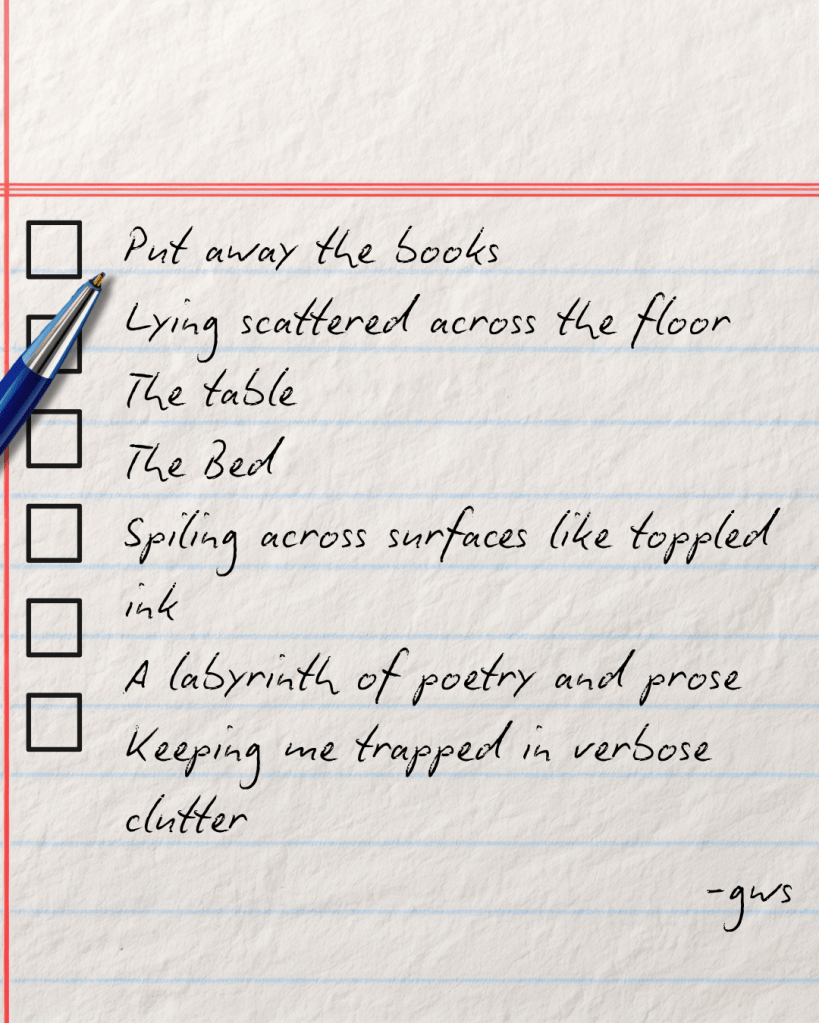 Put away the books
Lying scattered across the floor
The table
The Bed
Spiling across surfaces like toppled
ink
A labyrinth of poetry and prose
Keeping me trapped in verbose
clutter
-gws